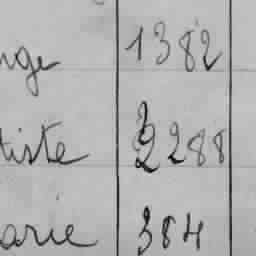 nge 1382
tiste 2288
arie 384